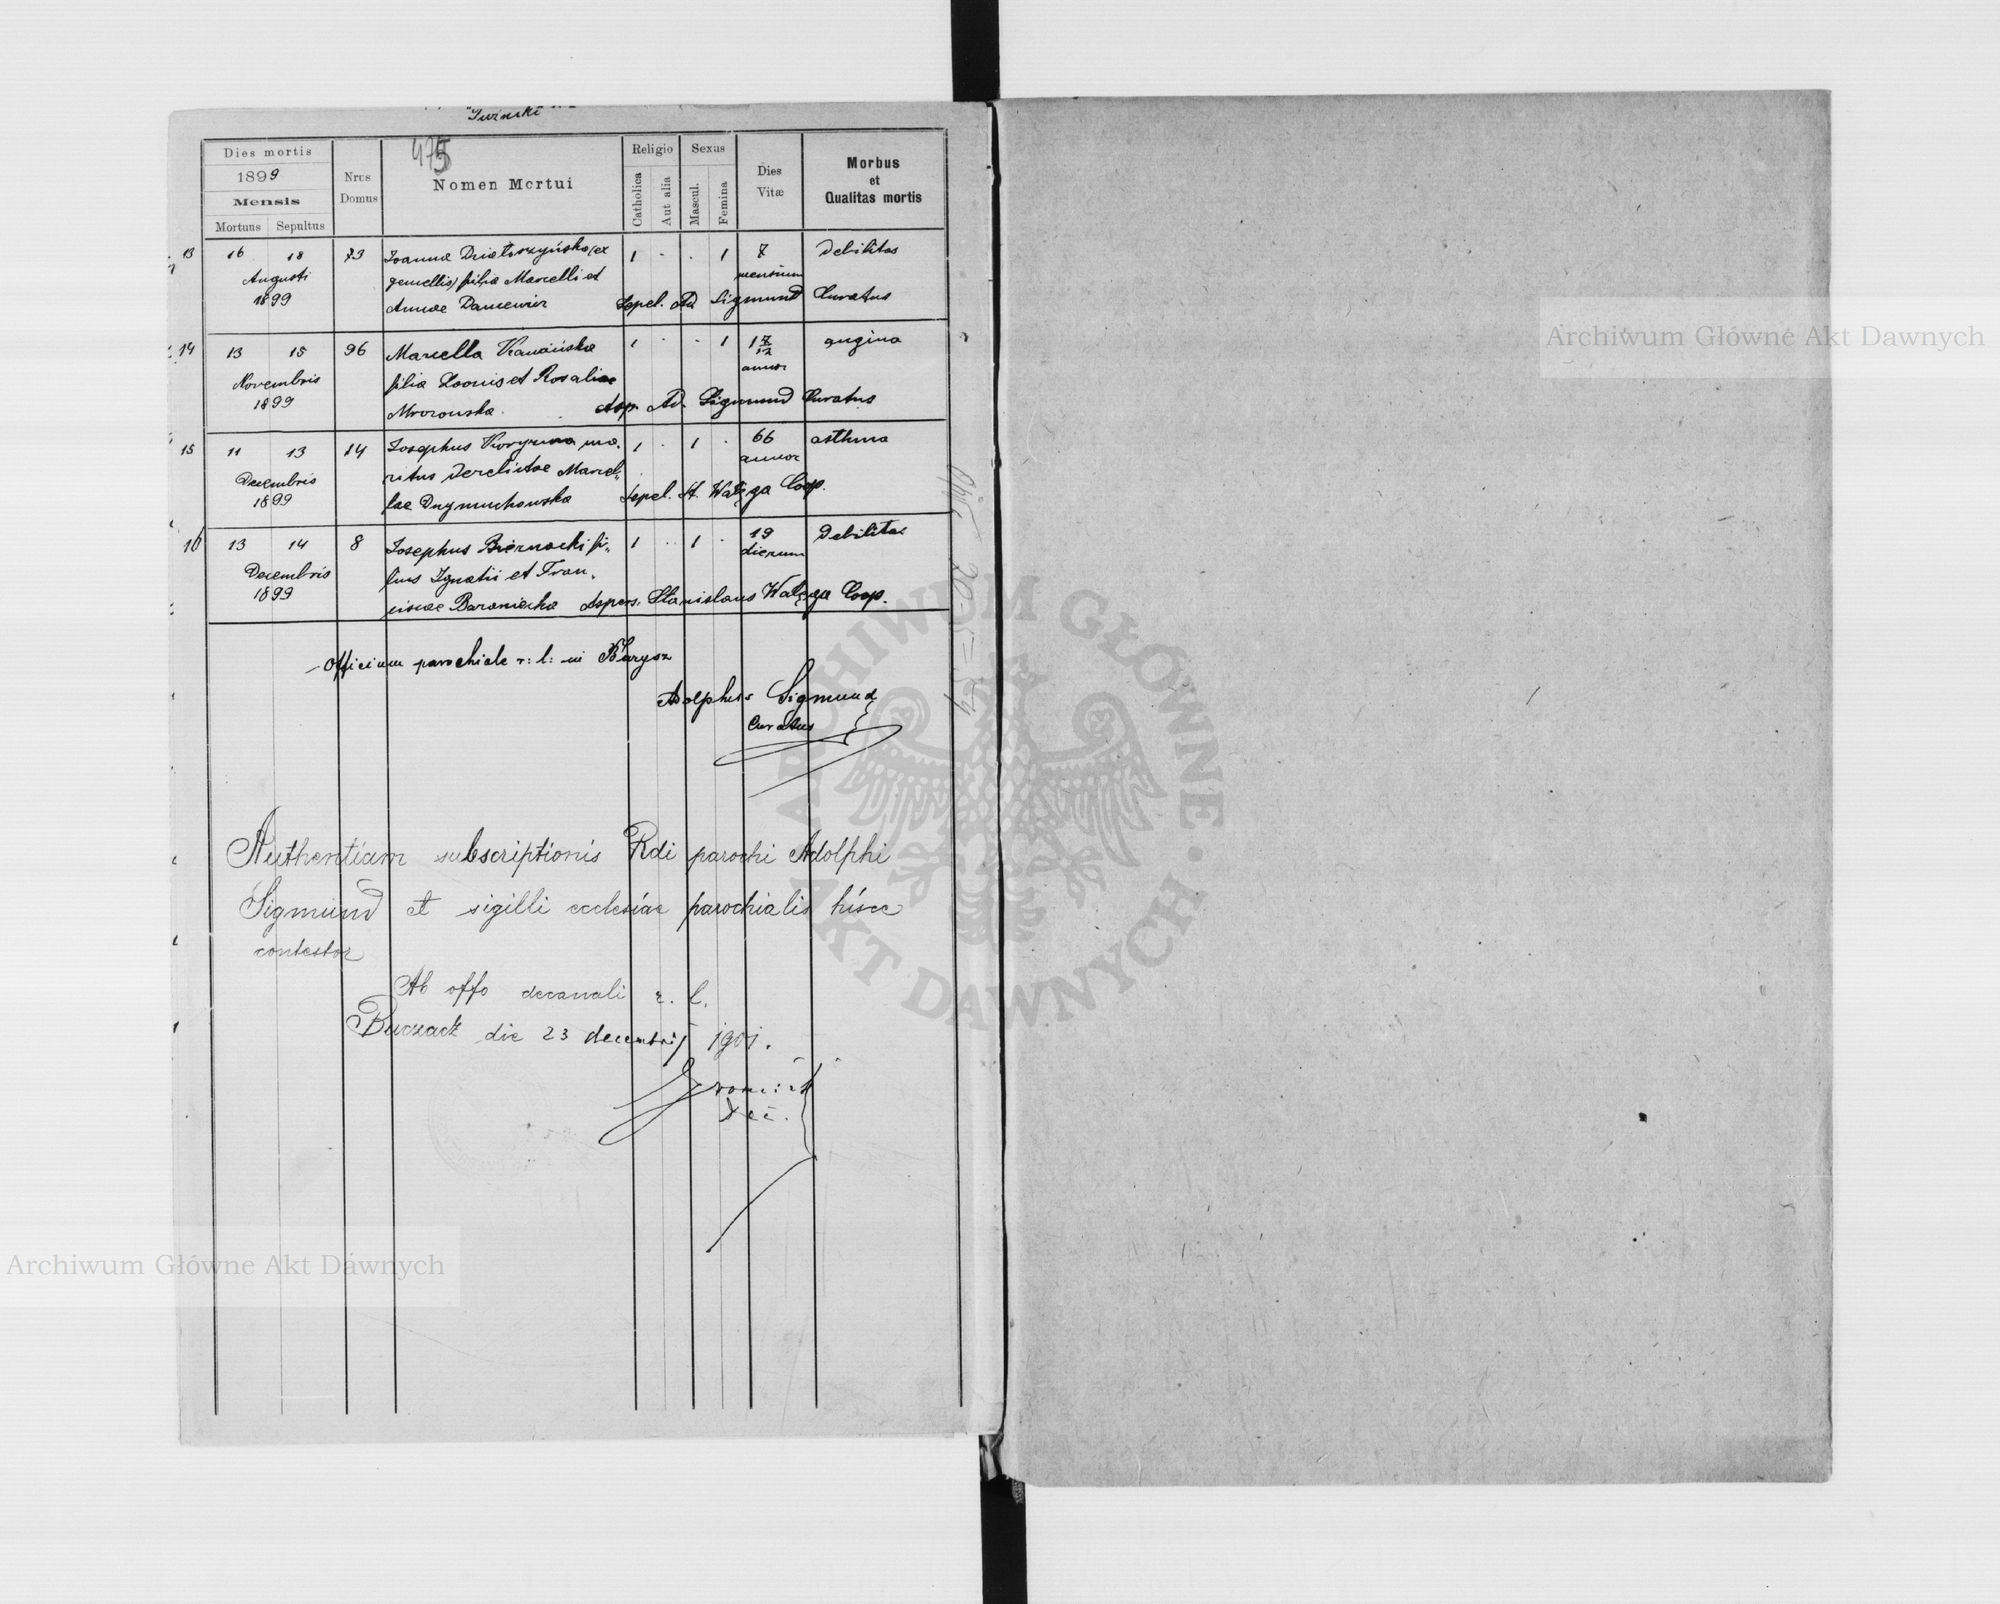 475
Dies mortis
1899
Mensis
Mortuus Sepultus
Nrus Domus
Nomen Mortui
Religio
Catholica
Aut alia
Sexus
Mascul.
Femina
Dies Vitæ
Morbus
et
Qualitas mortis
13 16 18 73 Joanna (ex 1 . . 1 7 Debilitas
Augusti gemellis) filia Marcelli et mensium
1899 Annae Sepel. Ad Sigmund Curatus
14 13 15 96 Marcella 1 . . 1 1 7/12 angina
Novembris filia et Rosaliae annor
1899 Mrozowska. Asp. Ad. Sigmund Curatus
15 11 13 14 Josephus ma- 1 . 1 . 66 asthma
Decembris ritus derelictae Marcel- annor
1899 lae Sepel. St. Watęga Coop.
16 13 14 8 Josephus Biernacki fi- 1 . 1 . 19 Debilitas
Decembris lius Ignatii et Fran- dierum
1899 ciscae Baraniecka Aspers. Stanislaus Watęga Coop.
Officium parochiale r: l: in Barysz
Adolphus Sigmund
Curatus
Authentiam subscriptionis Rdi parochi Adolphi
Sigmund et sigilli ecclesiae parochialis hisce
contestor
Ab offo decanali r. l.
Buczacz die 23 decembris 1901.
Archiwum Główne Akt Dawnych
Archiwum Główne Akt Dawnych
ARCHIWUM GŁÓWNE
AKT DAWNYCH